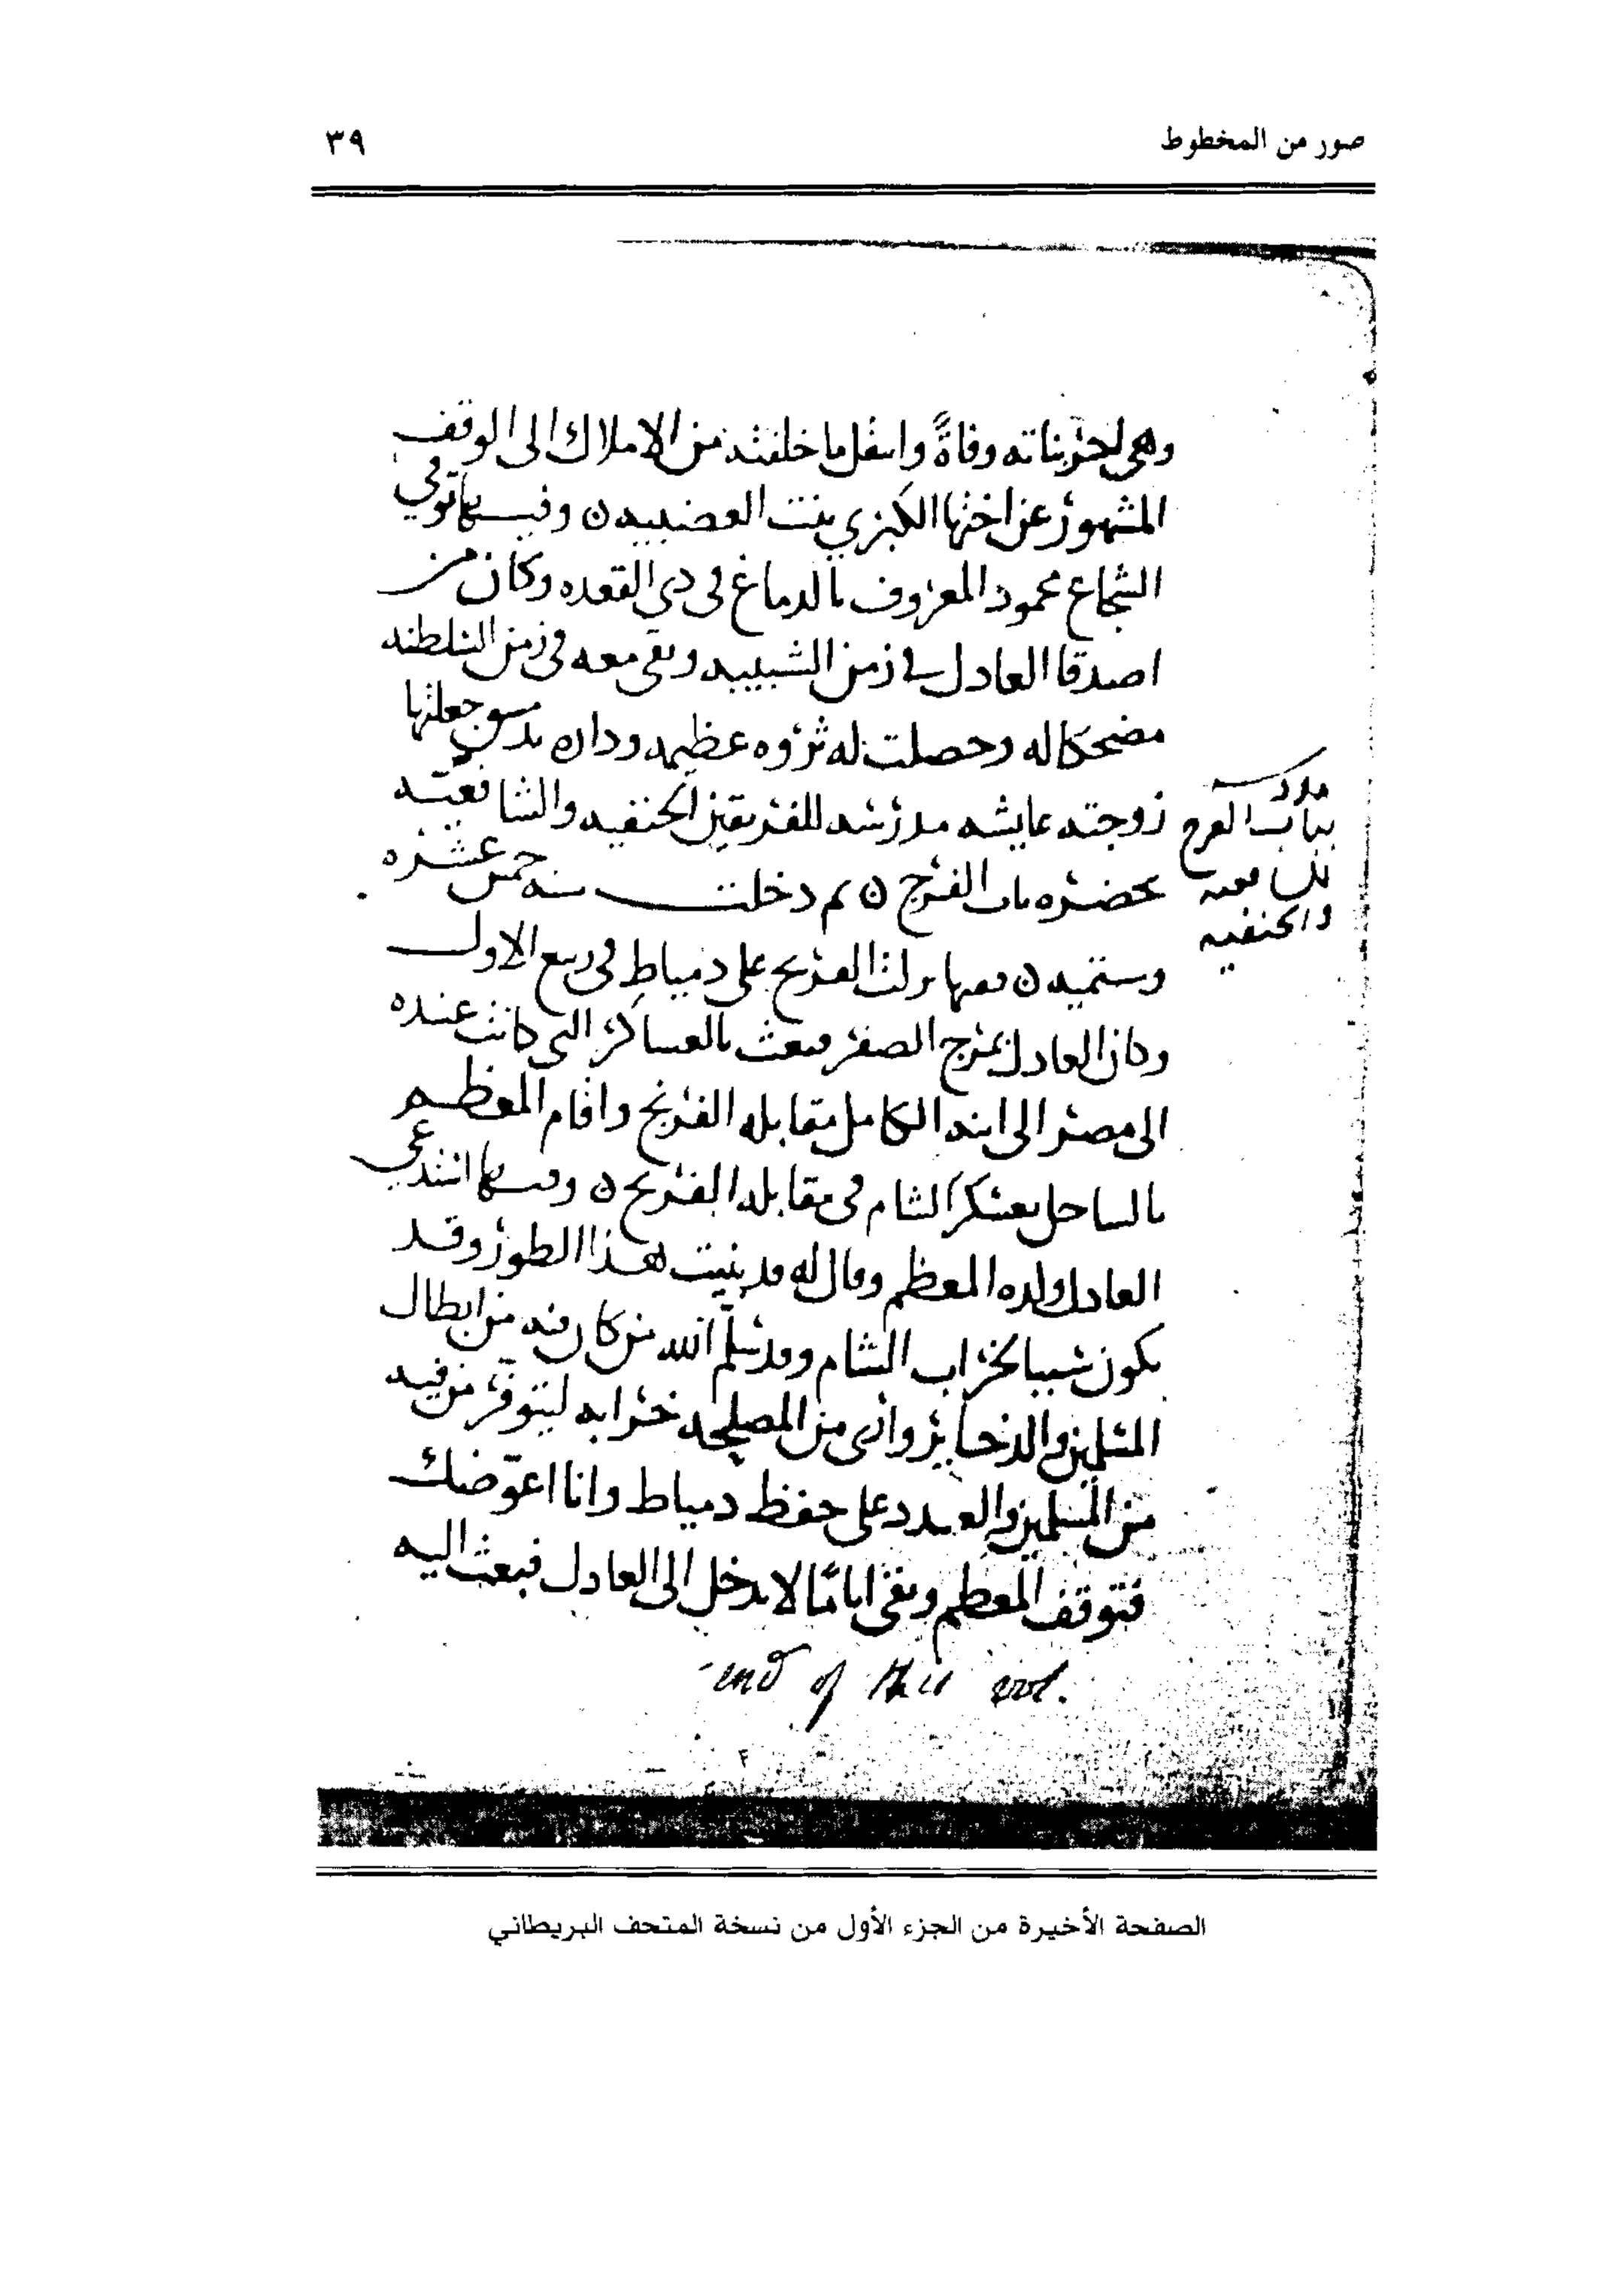 صور من المخطوط
٣٩
وهي اخر بناته وفاةً وانتقل ما خلفته من الاملاك الى الوقف
المشهور عن اختها الكبرى بنت العضبيه ن وفيها توفي
الشجاع محمود المعروف بالدماغ في ذي القعده وكان من
اصدقا العادل في زمن الشبيبه وبقى معه في زمن السلطنه
مضحكا له وحصلت له ثروه عظيمه وداره بدمشق جعلتها
زوجته عايشه مدرسه للفريقين الحنفيه والشافعيه
بحضره باب الفرج ن ثم دخلت سنه خمس عشره
وستميه ن فيها نزلت الفرنج على دمياط في ربيع الاول
وكان العادل بمرج الصفر فبعث بالعساكر التي كانت عنده
الى مصر الى ابنه الكامل مقابله الفرنج واقام المعظم
بالساحل بعسكر الشام في مقابله الفرنج ن وفيها استدعى
العادل ولده المعظم وقال له قد بنيت هذا الطور وقد
يكون سببا لخراب الشام وقد سلم الله من كان فيه من ابطال
المسلمين والذخاير وارى من المصلحه خرابه ليتوفر من فيه
من المسلمين والعدد على حفظ دمياط وانا اعوّضك
فتوقف المعظم وبقى ايامًا لا يدخل الى العادل فبعث اليه
بباب الفرج
للشافعيه
والحنفيه
end of this vol.
الصفحة الأخيرة من الجزء الأول من نسخة المتحف البريطاني